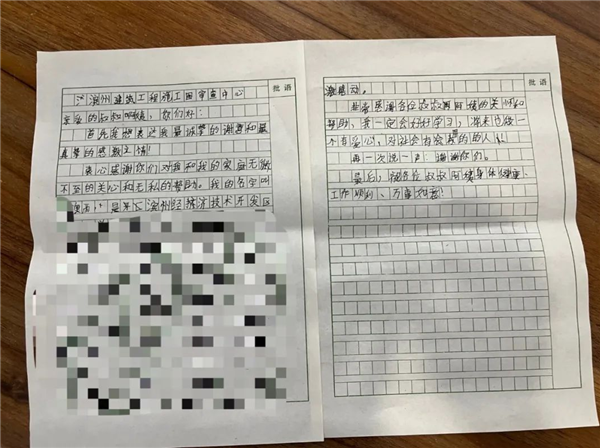 批语
滨州建筑工程施工图审查中心
亲爱的叔叔阿姨，你们好：
首先我想表达我最诚挚的谢意和最
真挚的感激之情！
衷心感谢你们对我和我的家庭无微
不至的关心和无私的帮助。我的名字叫
是 滨州经济技术开发区
批语
激感动。
非常感谢各位叔叔阿姨的关怀和
帮助，我一定会好好学习，将来也做一
个有爱心，对社会有贡献的人
再一次说一声：谢谢你们。
最后，祝各位叔叔阿姨身体健康、
工作顺利、万事如意！